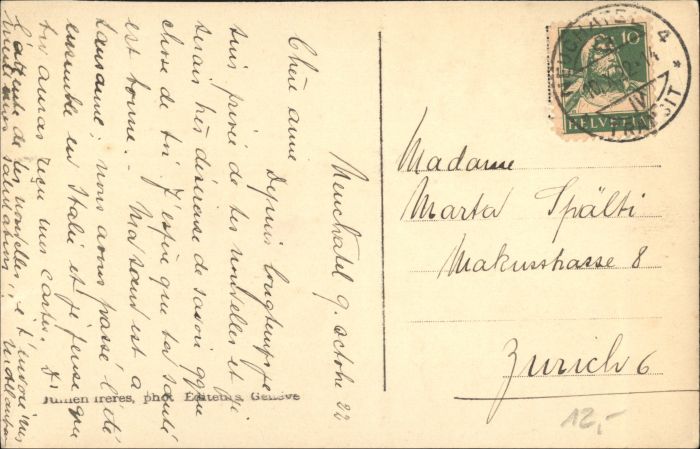 Neuchatel 9. octobre 22
Chère amie
Depuis longtemps je
suis privée de tes nouvelles et je
serais très désireuse de savoir qque
chose de toi. J'espère que ta santé
est bonne. - Ma sœur est a
Lausanne; nous avons passé l'été
ensemble en Italie et je pense que
tu auras reçu mes cartes.
L'attente de tes nouvelles, je t'envoie mes
salutations
Jullien frères, phot. Editeurs, Genève
NEUCHATEL
TRANSIT
10
HELVETIA
Madame
Marta Spälti
Makusstrasse 8
Zurich 6
12,-